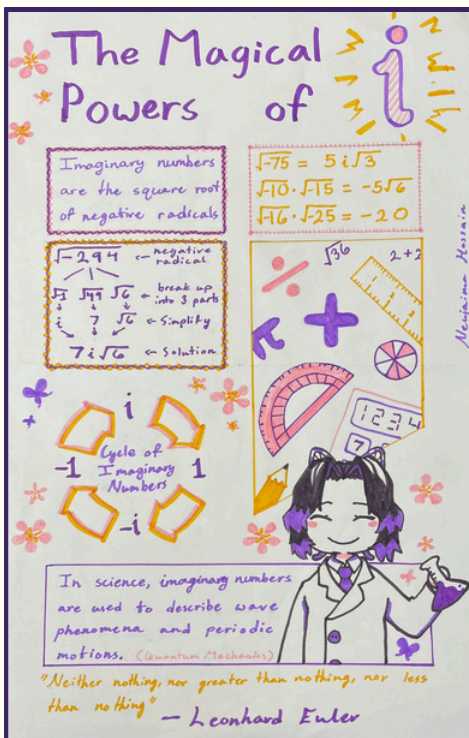 The Magical
Powers of i
Imaginary numbers
are the square root
of negative radicals
√-75 = 5i√3
√-10·√-15 = -5√6
√-16·√-25 = -20
√-294 ← negative
radical
√-1 √49 √6 ← break up
into 3 parts
i 7 √6 ← Simplify
7i√6 ← Solution
√36 2+2
π
1234
7
i
-1 Cycle of 1
Imaginary
Numbers
-i
In science, imaginary numbers
are used to describe wave
phenomena and periodic
motions. (Quantum Mechanics)
"Neither nothing, nor greater than nothing, nor less
than nothing"
— Leonhard Euler
Hossain